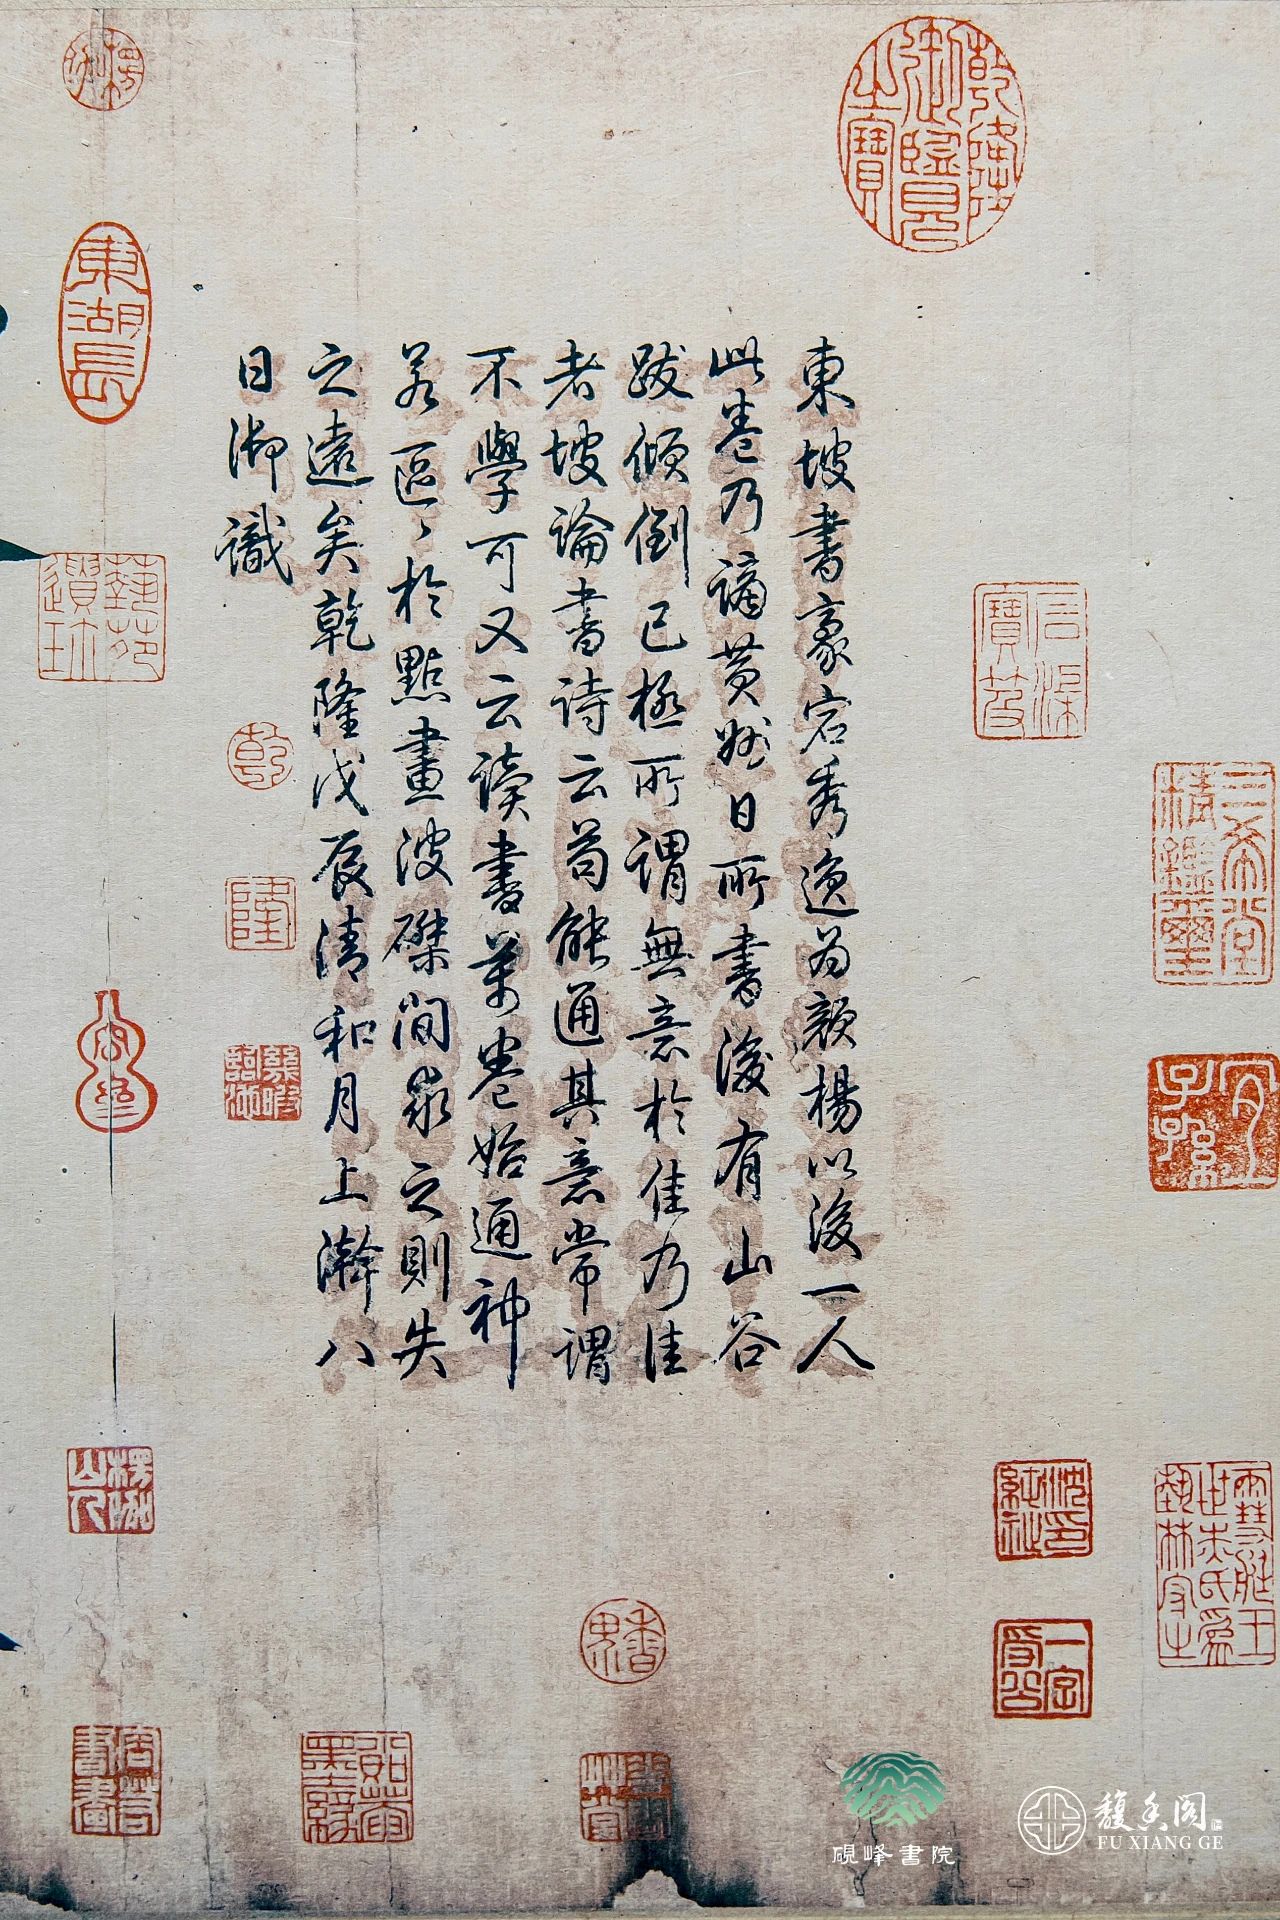 東坡書豪宕秀逸為顏楊以後一人
此卷乃謫黃州日所書後有山谷
跋傾倒已極所謂無意於佳乃佳
者坡論書詩云苟能通其意常謂
不學可又云讀書萬卷始通神
若區〻於點畫波磔間求之則失
之遠矣乾隆戊辰清和月上澣八
日御識
乾隆御覽之寶
東湖長
藝苑遺珍
三希堂精鑑璽
宜子孫
乾
隆
幾暇臨池
雪堂王世杰氏為藝林守之
硯峰書院
馥香阁
FU XIANG GE